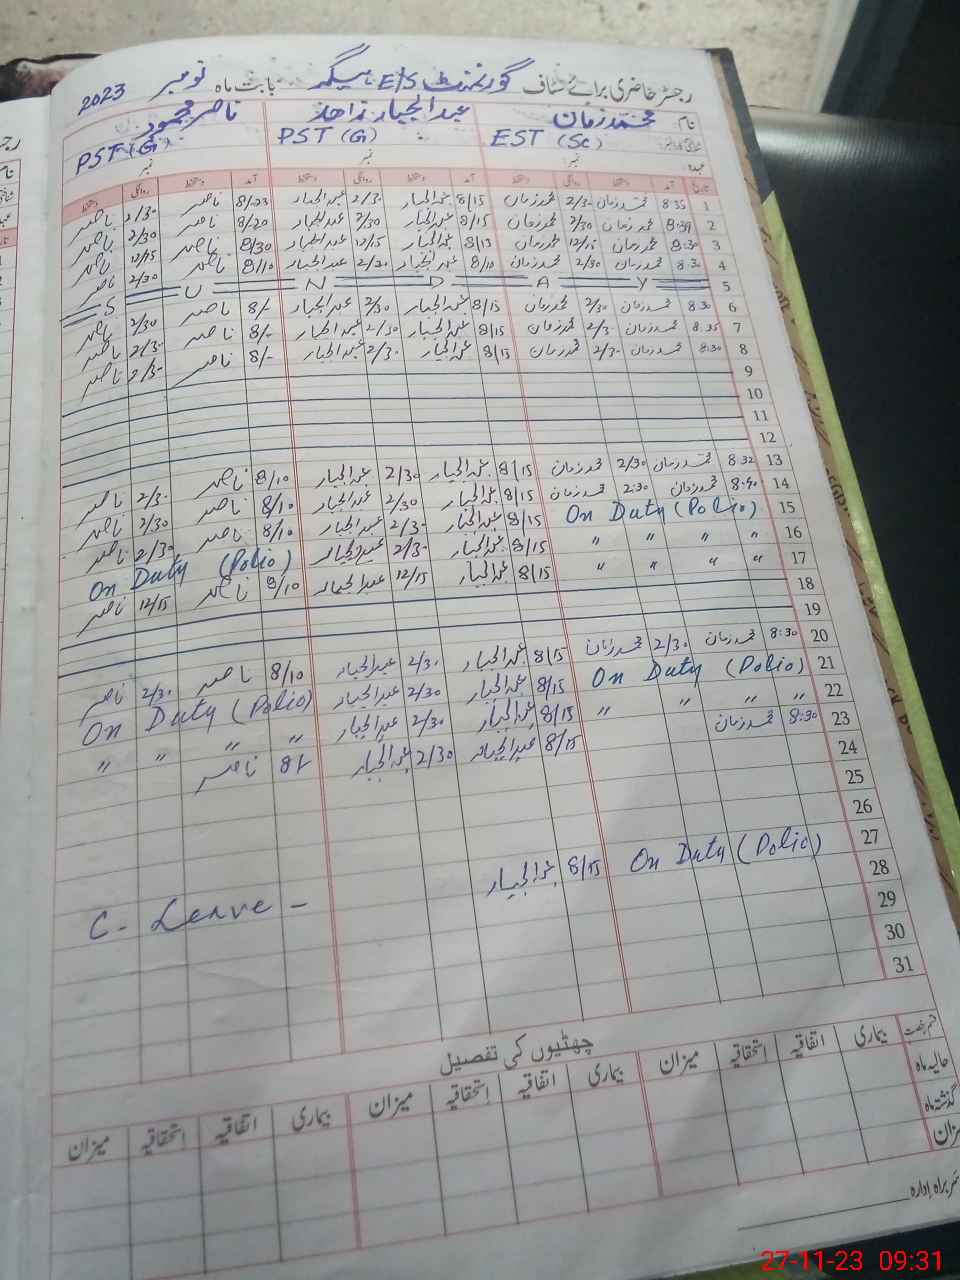 رجسٹر حاضری برائے سٹاف گورنمنٹ E/S ہیگر بابت ماہ نومبر 2023
نام محمد زمان عبدالجبار زاہد ناصر محمود
EST (Sc) PST (G) PST (G)
عہدہ نمبر نمبر نمبر
تاریخ آمد دستخط روانگی دستخط آمد دستخط روانگی دستخط آمد دستخط روانگی دستخط
1 8:35 محمد زمان 2/30 محمد زمان 8/15 عبدالجبار 2/30 عبدالجبار 8/23 ناصر 2/30 ناصر
2 8:39 محمد زمان 2/30 محمد زمان 8/15 عبدالجبار 2/30 عبدالجبار 8/20 ناصر 2/30 ناصر
3 8:30 محمد زمان 12/15 محمد زمان 8/15 عبدالجبار 12/15 عبدالجبار 8/30 ناصر 12/15 ناصر
4 8:30 محمد زمان 2/30 محمد زمان 8/10 عبدالجبار 2/30 عبدالجبار 8/10 ناصر 2/30 ناصر
5 S U N D A Y
6 8:30 محمد زمان 2/30 محمد زمان 8/15 عبدالجبار 2/30 عبدالجبار 8/- ناصر 2/30 ناصر
7 8:35 محمد زمان 2/30 محمد زمان 8/15 عبدالجبار 2/30 عبدالجبار 8/- ناصر 2/30 ناصر
8 8:30 محمد زمان 2/30 محمد زمان 8/15 عبدالجبار 2/30 عبدالجبار 8/- ناصر 2/30 ناصر
9
10
11
12
13 8:32 محمد زمان 2/30 محمد زمان 8/15 عبدالجبار 2/30 عبدالجبار 8/10 ناصر 2/30 ناصر
14 8:40 محمد زمان 2:30 محمد زمان 8/15 عبدالجبار 2/30 عبدالجبار 8/10 ناصر 2/30 ناصر
15 On Duty (Polio) 8/15 عبدالجبار 2/30 عبدالجبار 8/10 ناصر 2/30 ناصر
16 " " " " 8/15 عبدالجبار 2/30 عبدالجبار On Duty (Polio)
17 " " " " 8/15 عبدالجبار 12/15 عبدالجبار 8/10 ناصر 12/15 ناصر
18
19
20 8:30 محمد زمان 2/30 محمد زمان 8/15 عبدالجبار 2/30 عبدالجبار 8/10 ناصر 2/30 ناصر
21 On Duty (Polio) 8/15 عبدالجبار 2/30 عبدالجبار On Duty (Polio)
22 " " " " 8/15 عبدالجبار 2/30 عبدالجبار " " " "
23 8:30 محمد زمان 8/15 عبدالجبار 2/30 عبدالجبار 8/- ناصر
24
25
26
27 On Duty (Polio) 8/15 عبدالجبار C. Leave -
28
29
30
31
چھٹیوں کی تفصیل
قسم رخصت بیماری اتفاقیہ استحقاقیہ میزان بیماری اتفاقیہ استحقاقیہ میزان بیماری اتفاقیہ استحقاقیہ میزان
حالیہ ماہ
گذشتہ ماہ
میزان
سربراہ ادارہ
27-11-23 09:31